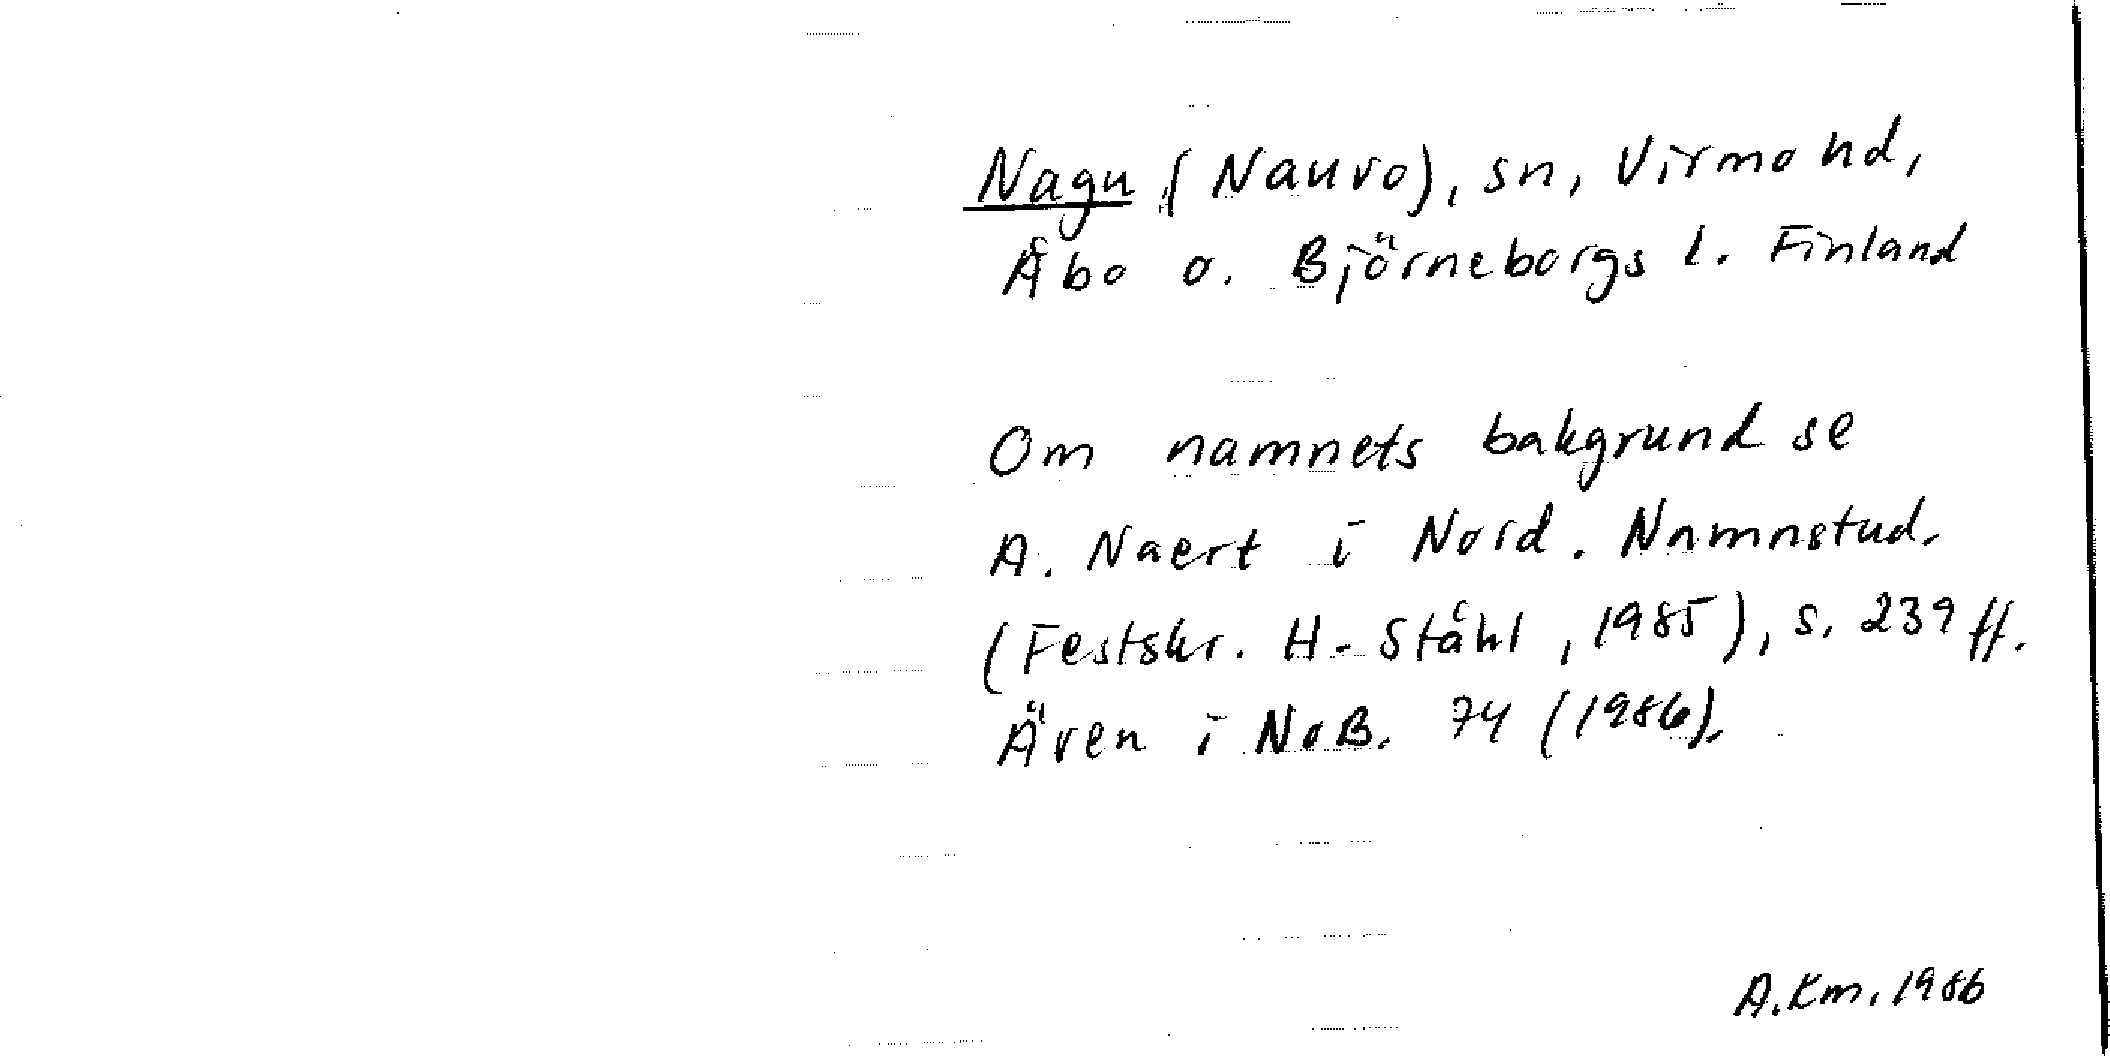 Nagu (Nauvo), sn, Virmo hd,
Åbo o. Björneborgs l. Finland
Om namnets bakgrund se
A. Naert i Nord. Namnstud.
(Festskr. H. Ståhl, 1985), s. 239 ff.
Även i NoB. 74 (1986).
A.Km. 1986